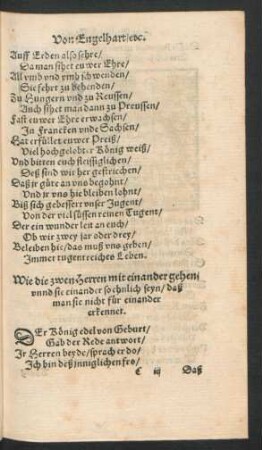 Von Engelhart/etc.
Auff Erden also sehre/
Da man sihet euwer Ehre/
All vmb vnd vmb sich wenden/
Sie fehrt zu behenden/
Zu Hungern vnd zu Reussen/
Auch sihet man dann zu Preussen/
Fast euwer Ehre erwachsen/
In Francken vnde Sachsen/
Hat erfüllet euwer Preiß/
Viel hochgelobter König weiß/
Vnd bitten euch fleissiglichen/
Deß sind wir her gestriechen/
Daß jr güte an vns begohnt/
Vnd jr vns hie bleiben lohnt/
Biß sich gebessert vnser Jugent/
Von der viel süssen reinen Tugent/
Der ein wunder len an euch/
Ob wir zwey jar oder drey/
Beleiben hie/das muß vns geben/
Immer tugentreiches Leben.
Wie die zwen Herren mit einander gehen/
vnnd sie einander so ehnlich seyn/daß
man sie nicht für einander
erkennet.
DEr König edel von Geburt/
Gab der Rede antwort/
Ir Herren beyde/sprach er do/
Ich bin deß inniglichen fro/
C iij Daß